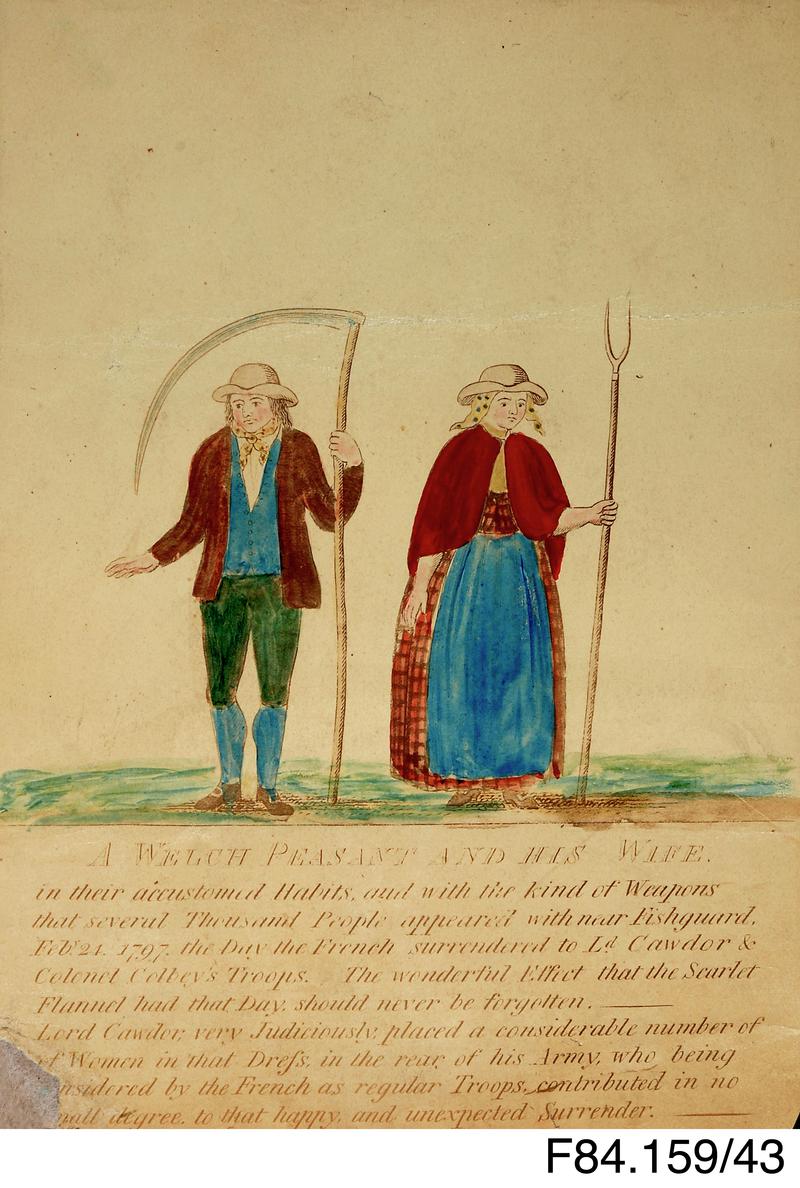 A WELCH PEASANT AND HIS WIFE.
in their accustomed Habits, and with the kind of Weapons
that several Thousand People appeared with near Fishguard,
Feb.y 24. 1797. the Day the French surrendered to L.d Cawdor &
Colonel Colbey's Troops. The wonderful Effect that the Scarlet
Flannel had that Day, should never be forgotten.
Lord Cawdor, very Judiciously, placed a considerable number of
of Women in that Dreſs, in the rear of his Army, who being
nsidered by the French as regular Troops, contributed in no
mall degree, to that happy, and unexpected Surrender.
F84.159/43